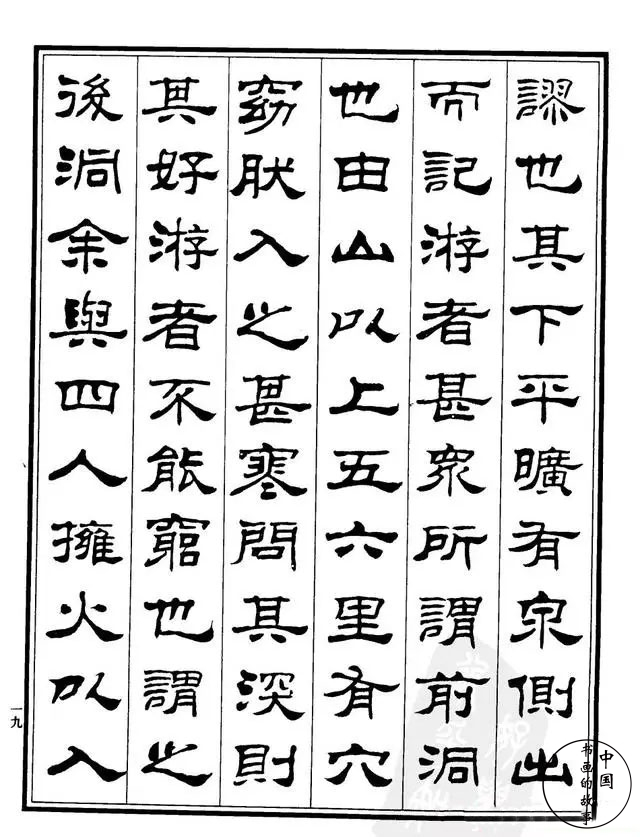 謬也其下平曠有泉側出
而記游者甚眾所謂前洞
也由山以上五六里有穴
窈肰入之甚寒問其深則
其好游者不能窮也謂之
後洞余與四人擁火以入
一九
中国
书画的故事